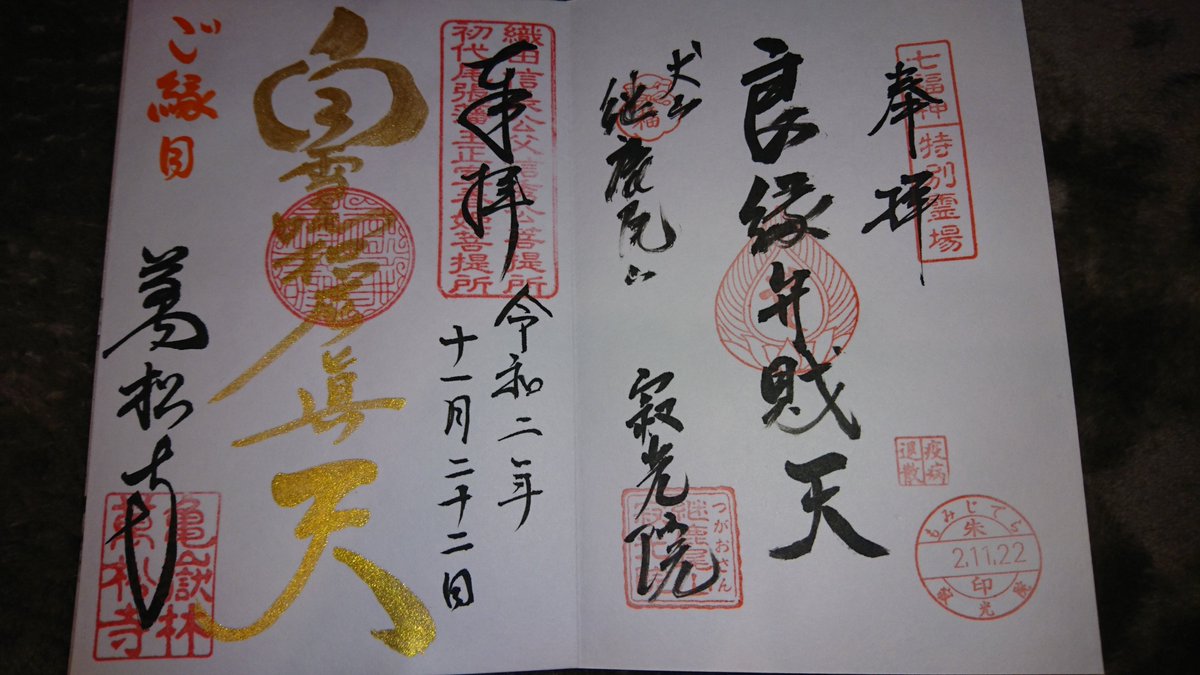 七福神特別霊場
奉拝
疫病
退散
もみじでら
朱
2.11.22
印
寂光院
良縁弁財天
犬山
継鹿尾山 寂光院
福
つがおさん
継鹿尾山
織田信長公父信秀公菩提所
初代尾張藩主正室春姫菩提所
奉拝
令和二年
十一月二十二日
白雪吒枳尼眞天
ご縁日
萬松寺
亀嶽林
萬松寺